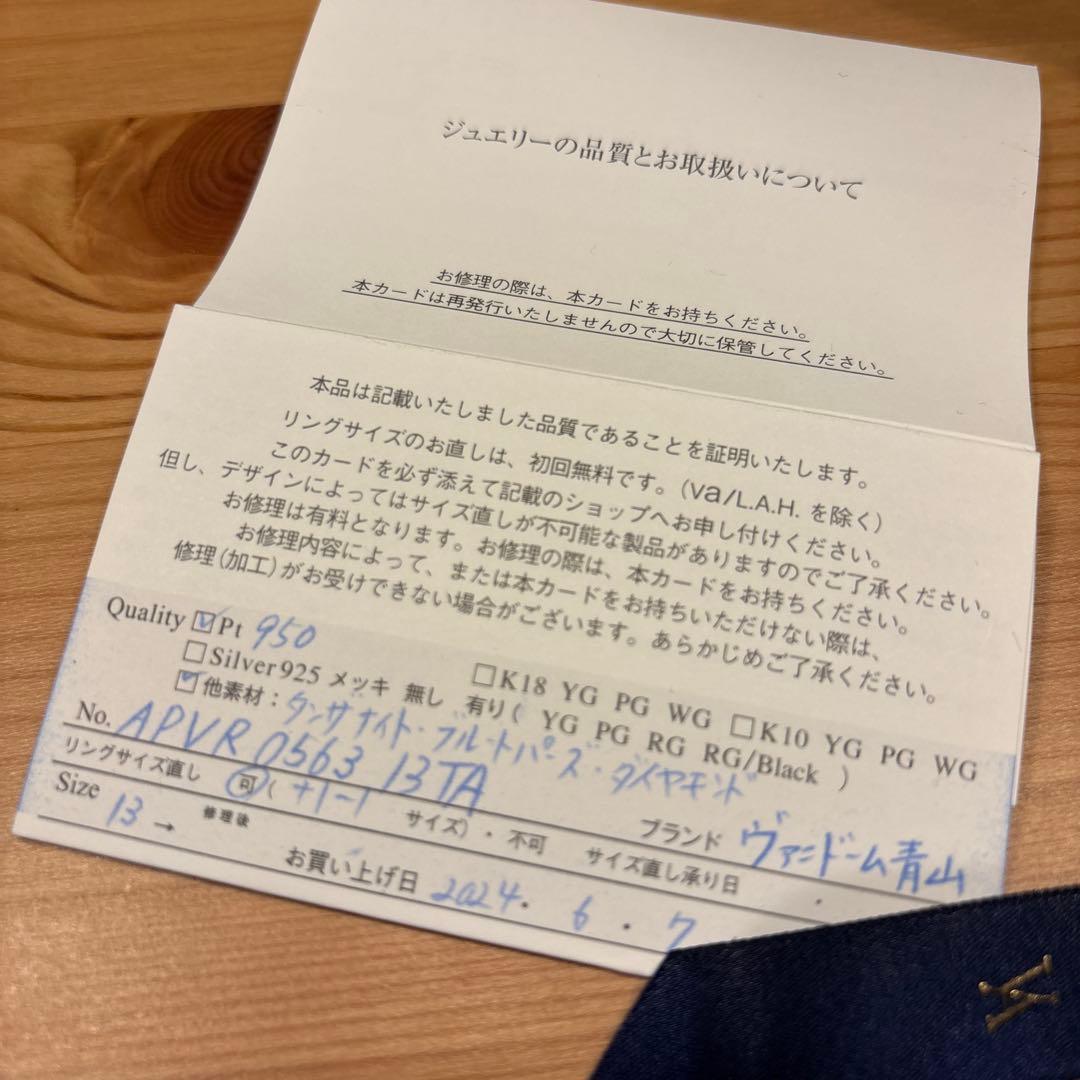 ジュエリーの品質とお取扱いについて
お修理の際は、本カードをお持ちください。
本カードは再発行いたしませんので大切に保管してください。
本品は記載いたしました品質であることを証明いたします。
リングサイズのお直しは、初回無料です。(va/L.A.H. を除く)
このカードを必ず添えて記載のショップへお申し付けください。
但し、デザインによってはサイズ直しが不可能な製品がありますのでご了承ください。
お修理は有料となります。お修理の際は、本カードをお持ちください。
お修理内容によって、または本カードをお持ちいただけない際は、
修理(加工)がお受けできない場合がございます。あらかじめご了承ください。
Quality ☑Pt 950 □K18 YG PG WG □K10 YG PG WG
□Silver925 メッキ 無し 有り( YG PG RG RG/Black )
☑他素材:タンザナイト・ブルートパーズ・ダイヤモンド
No. APVR 0563 13TA ブランド ヴァンドーム青山
リングサイズ直し 可 ( +1−1 サイズ)・不可 サイズ直し承り日 ・
Size 13 → 修理後
お買い上げ日 2024・6・7